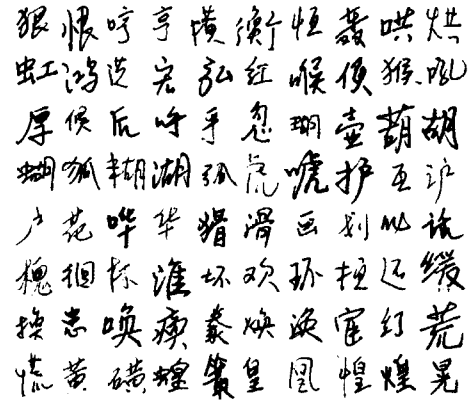 狠恨哼亨横衡恒轰哄烘
虹鸿洪宏弘红喉侯猴吼
厚候后呼乎忽瑚壶葫胡
蝴狐糊湖弧虎唬护互沪
户花哗华猾滑画划化话
槐徊怀淮坏欢环桓还缓
换患唤痪豢焕涣宦幻荒
慌黄磺蝗簧皇凰惶煌晃